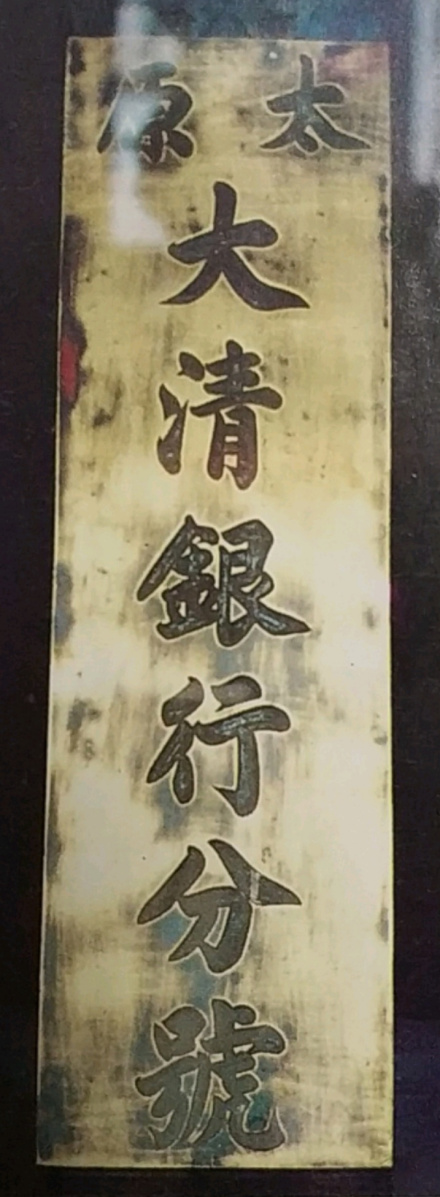 太原
大清銀行分號